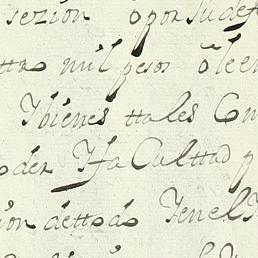 sezion o por su def
ttro mil pesos o le en
Ibienes ttales Con
oder Ifa Culttad p
ion dettodo Ienel